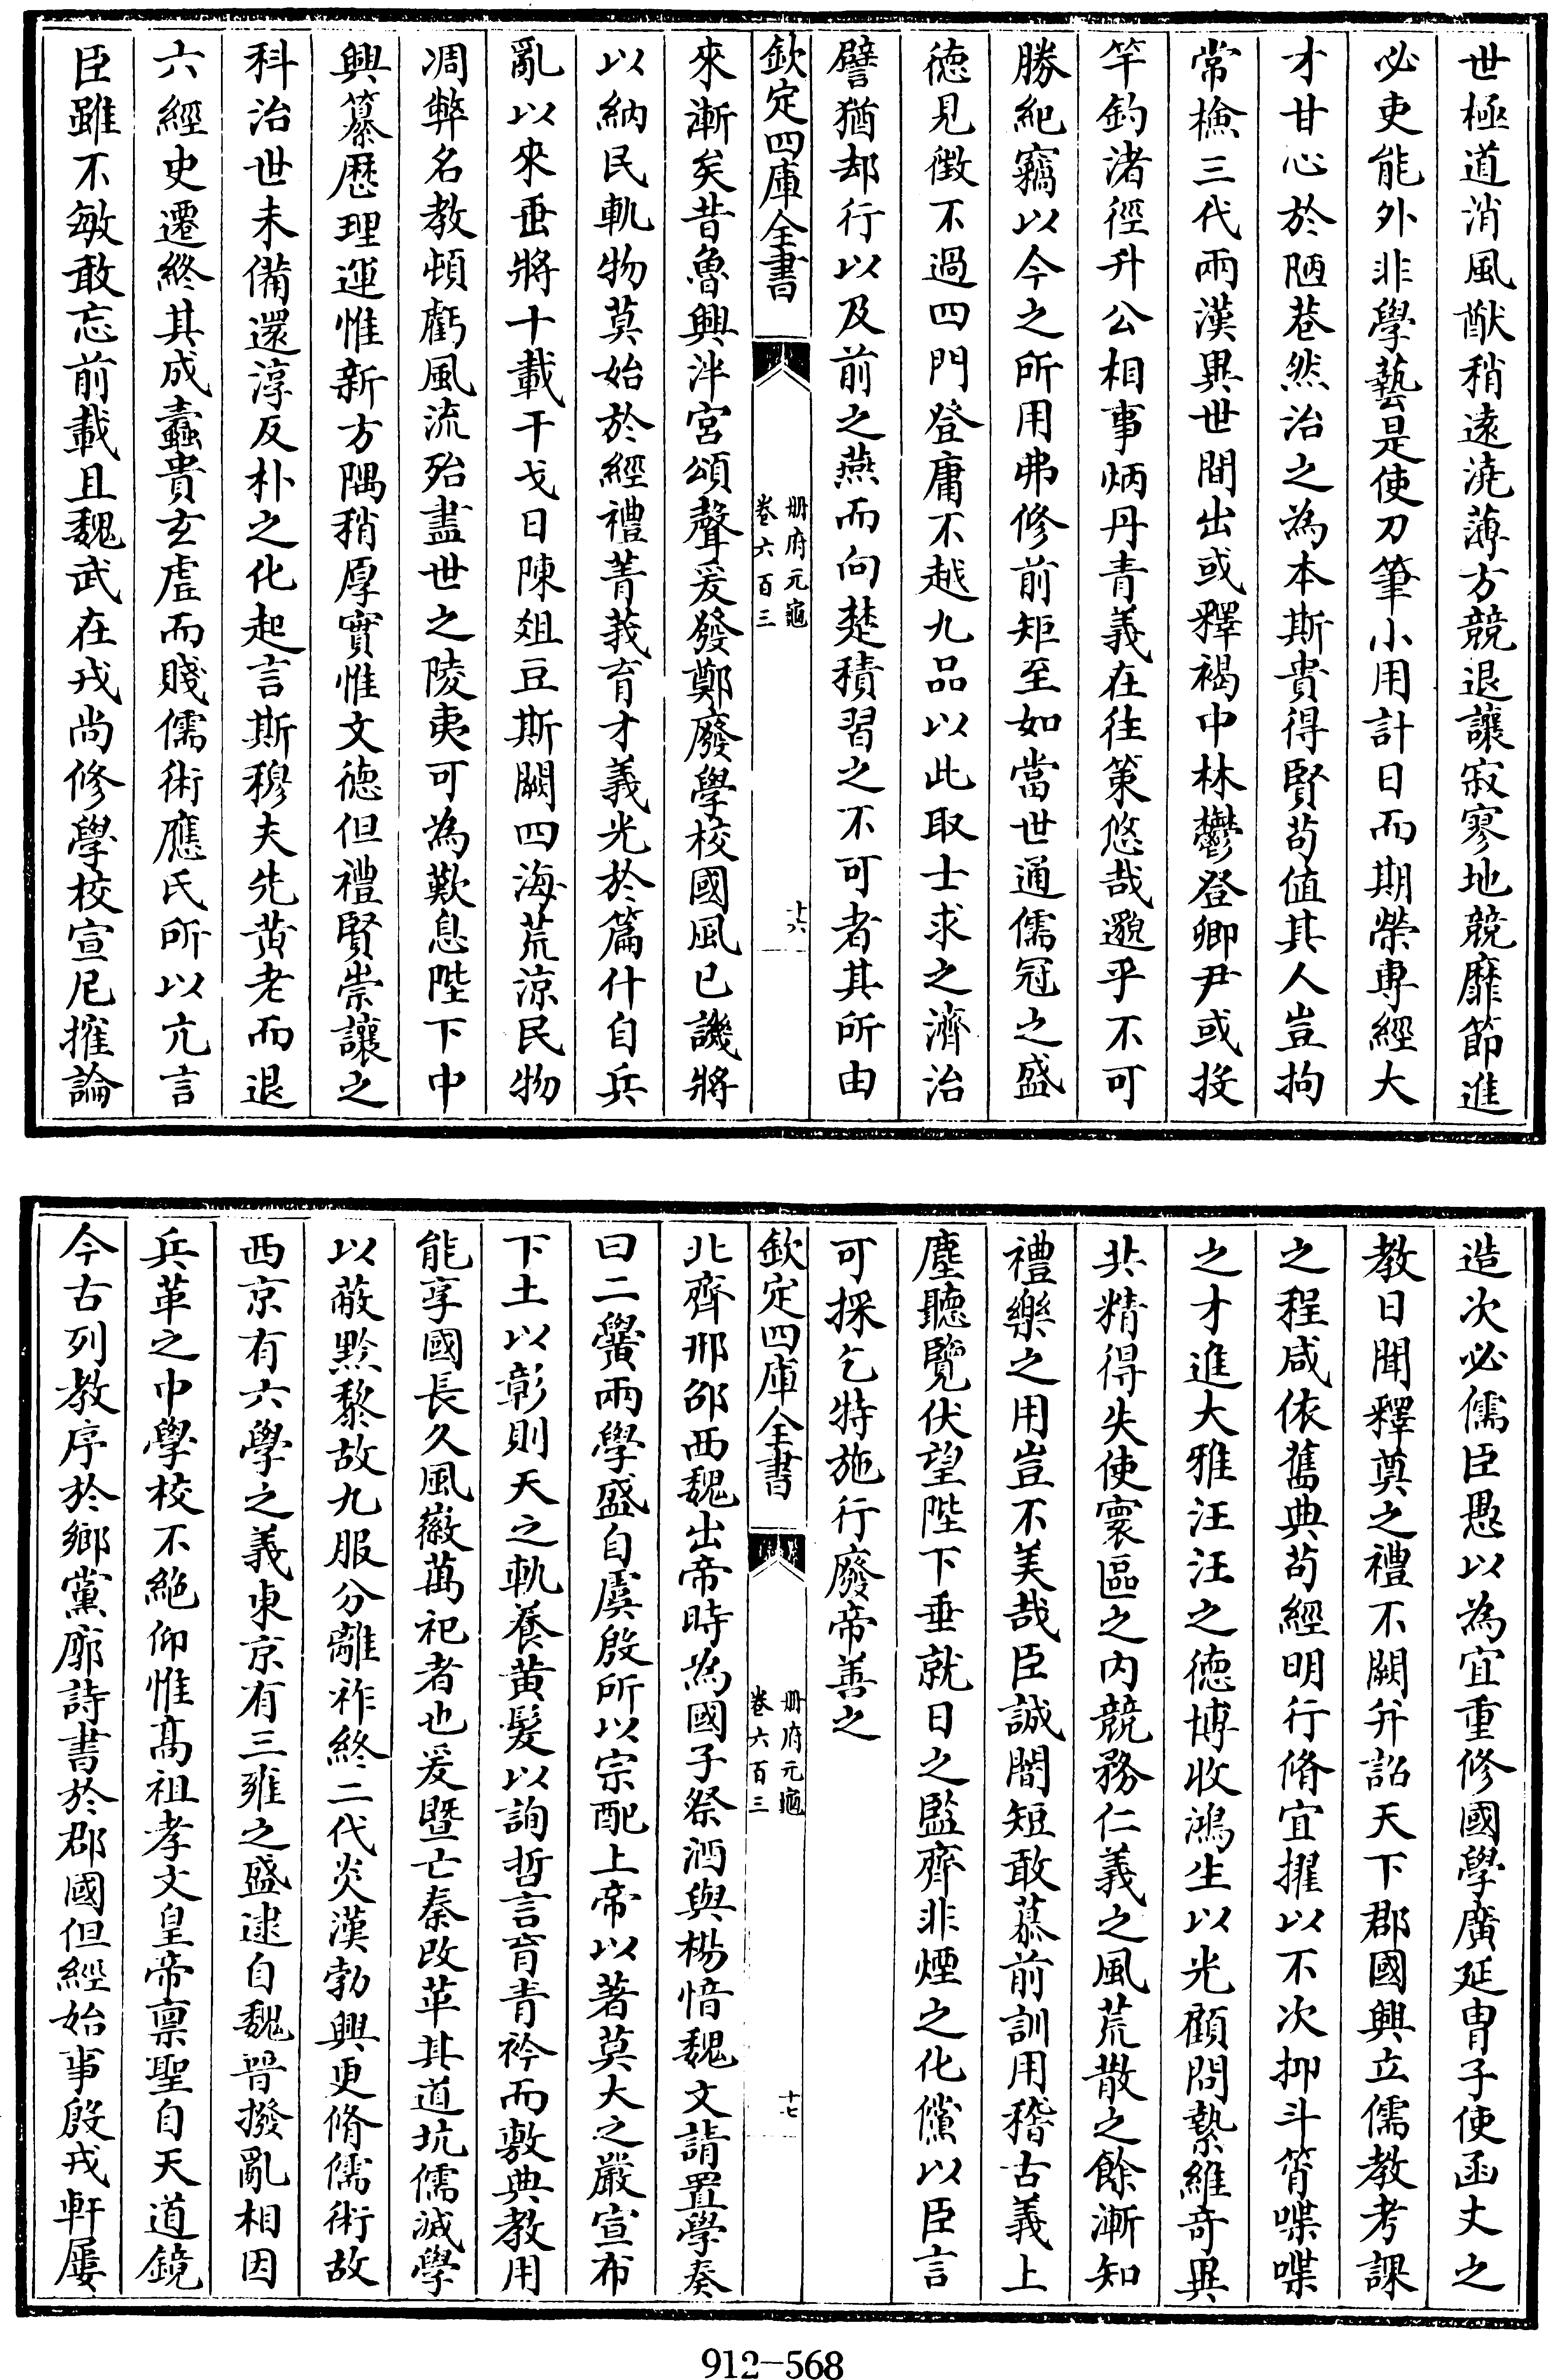 世極道消風猷稍遠澆薄方競退讓寂寥地競靡節進
必吏能外非學藝是使刀筆小用計日而期榮專經大
才甘心於陋巷然治之為本斯貴得賢苟值其人豈拘
常檢三代兩漢異世間出或釋褐中林鬱登卿尹或投
竿釣渚徑升公相事炳丹青義在往策悠哉邈乎不可
勝紀竊以今之所用弗修前矩至如當世通儒冠之盛
徳見徴不過四門登庸不越九品以此取士求之濟治
譬猶却行以及前之燕而向楚積習之不可者其所由
欽定四庫全書
冊府元龜
卷六百三
十六
來漸矣昔魯興泮宮頌聲爰發鄭廢學校國風已譏將
以納民軌物莫始於經禮菁莪育才義光於篇什自兵
亂以來垂將十載干戈日陳俎豆斯闕四海荒涼民物
凋弊名教頓虧風流殆盡世之陵夷可為歎息陛下中
興纂厯理運惟新方隅稍厚實惟文徳但禮賢崇讓之
科治世未備還淳反朴之化起言斯穆夫先黄老而退
六經史遷終其成蠹貴玄虛而賤儒術應氏所以亢言
臣雖不敏敢忘前載且魏武在戎尚修學校宣尼搉論
造次必儒臣愚以為宜重修國學廣延胄子使函丈之
教日聞釋奠之禮不闕并詔天下郡國興立儒教考課
之程咸依舊典苟經明行脩宜擢以不次抑斗筲喋喋
之才進大雅汪汪之徳博收鴻生以光顧問縶維竒異
共精得失使寰區之内競務仁義之風荒散之餘漸知
禮樂之用豈不美哉臣誠闇短敢慕前訓用稽古義上
塵聽覽伏望陛下垂就日之監齊非煙之化儻以臣言
可採乞特施行廢帝善之
欽定四庫全書
冊府元龜
卷六百三
十七
北齊邢邵西魏出帝時為國子祭酒與楊愔魏文請置學奏
曰二黌兩學盛自虞殷所以宗配上帝以著莫大之嚴宣布
下土以彰則天之軌養黄髮以詢哲言育青衿而敷典教用
能享國長久風徽萬祀者也爰暨亡秦改革其道坑儒滅學
以蔽黔黎故九服分離祚終二代炎漢勃興更脩儒術故
西京有六學之義東京有三雍之盛逮自魏晉撥亂相因
兵革之中學校不絶仰惟髙祖孝文皇帝禀聖自天道鏡
今古列教序於鄉黨廓詩書於郡國但經始事殷戎軒屢
912—568